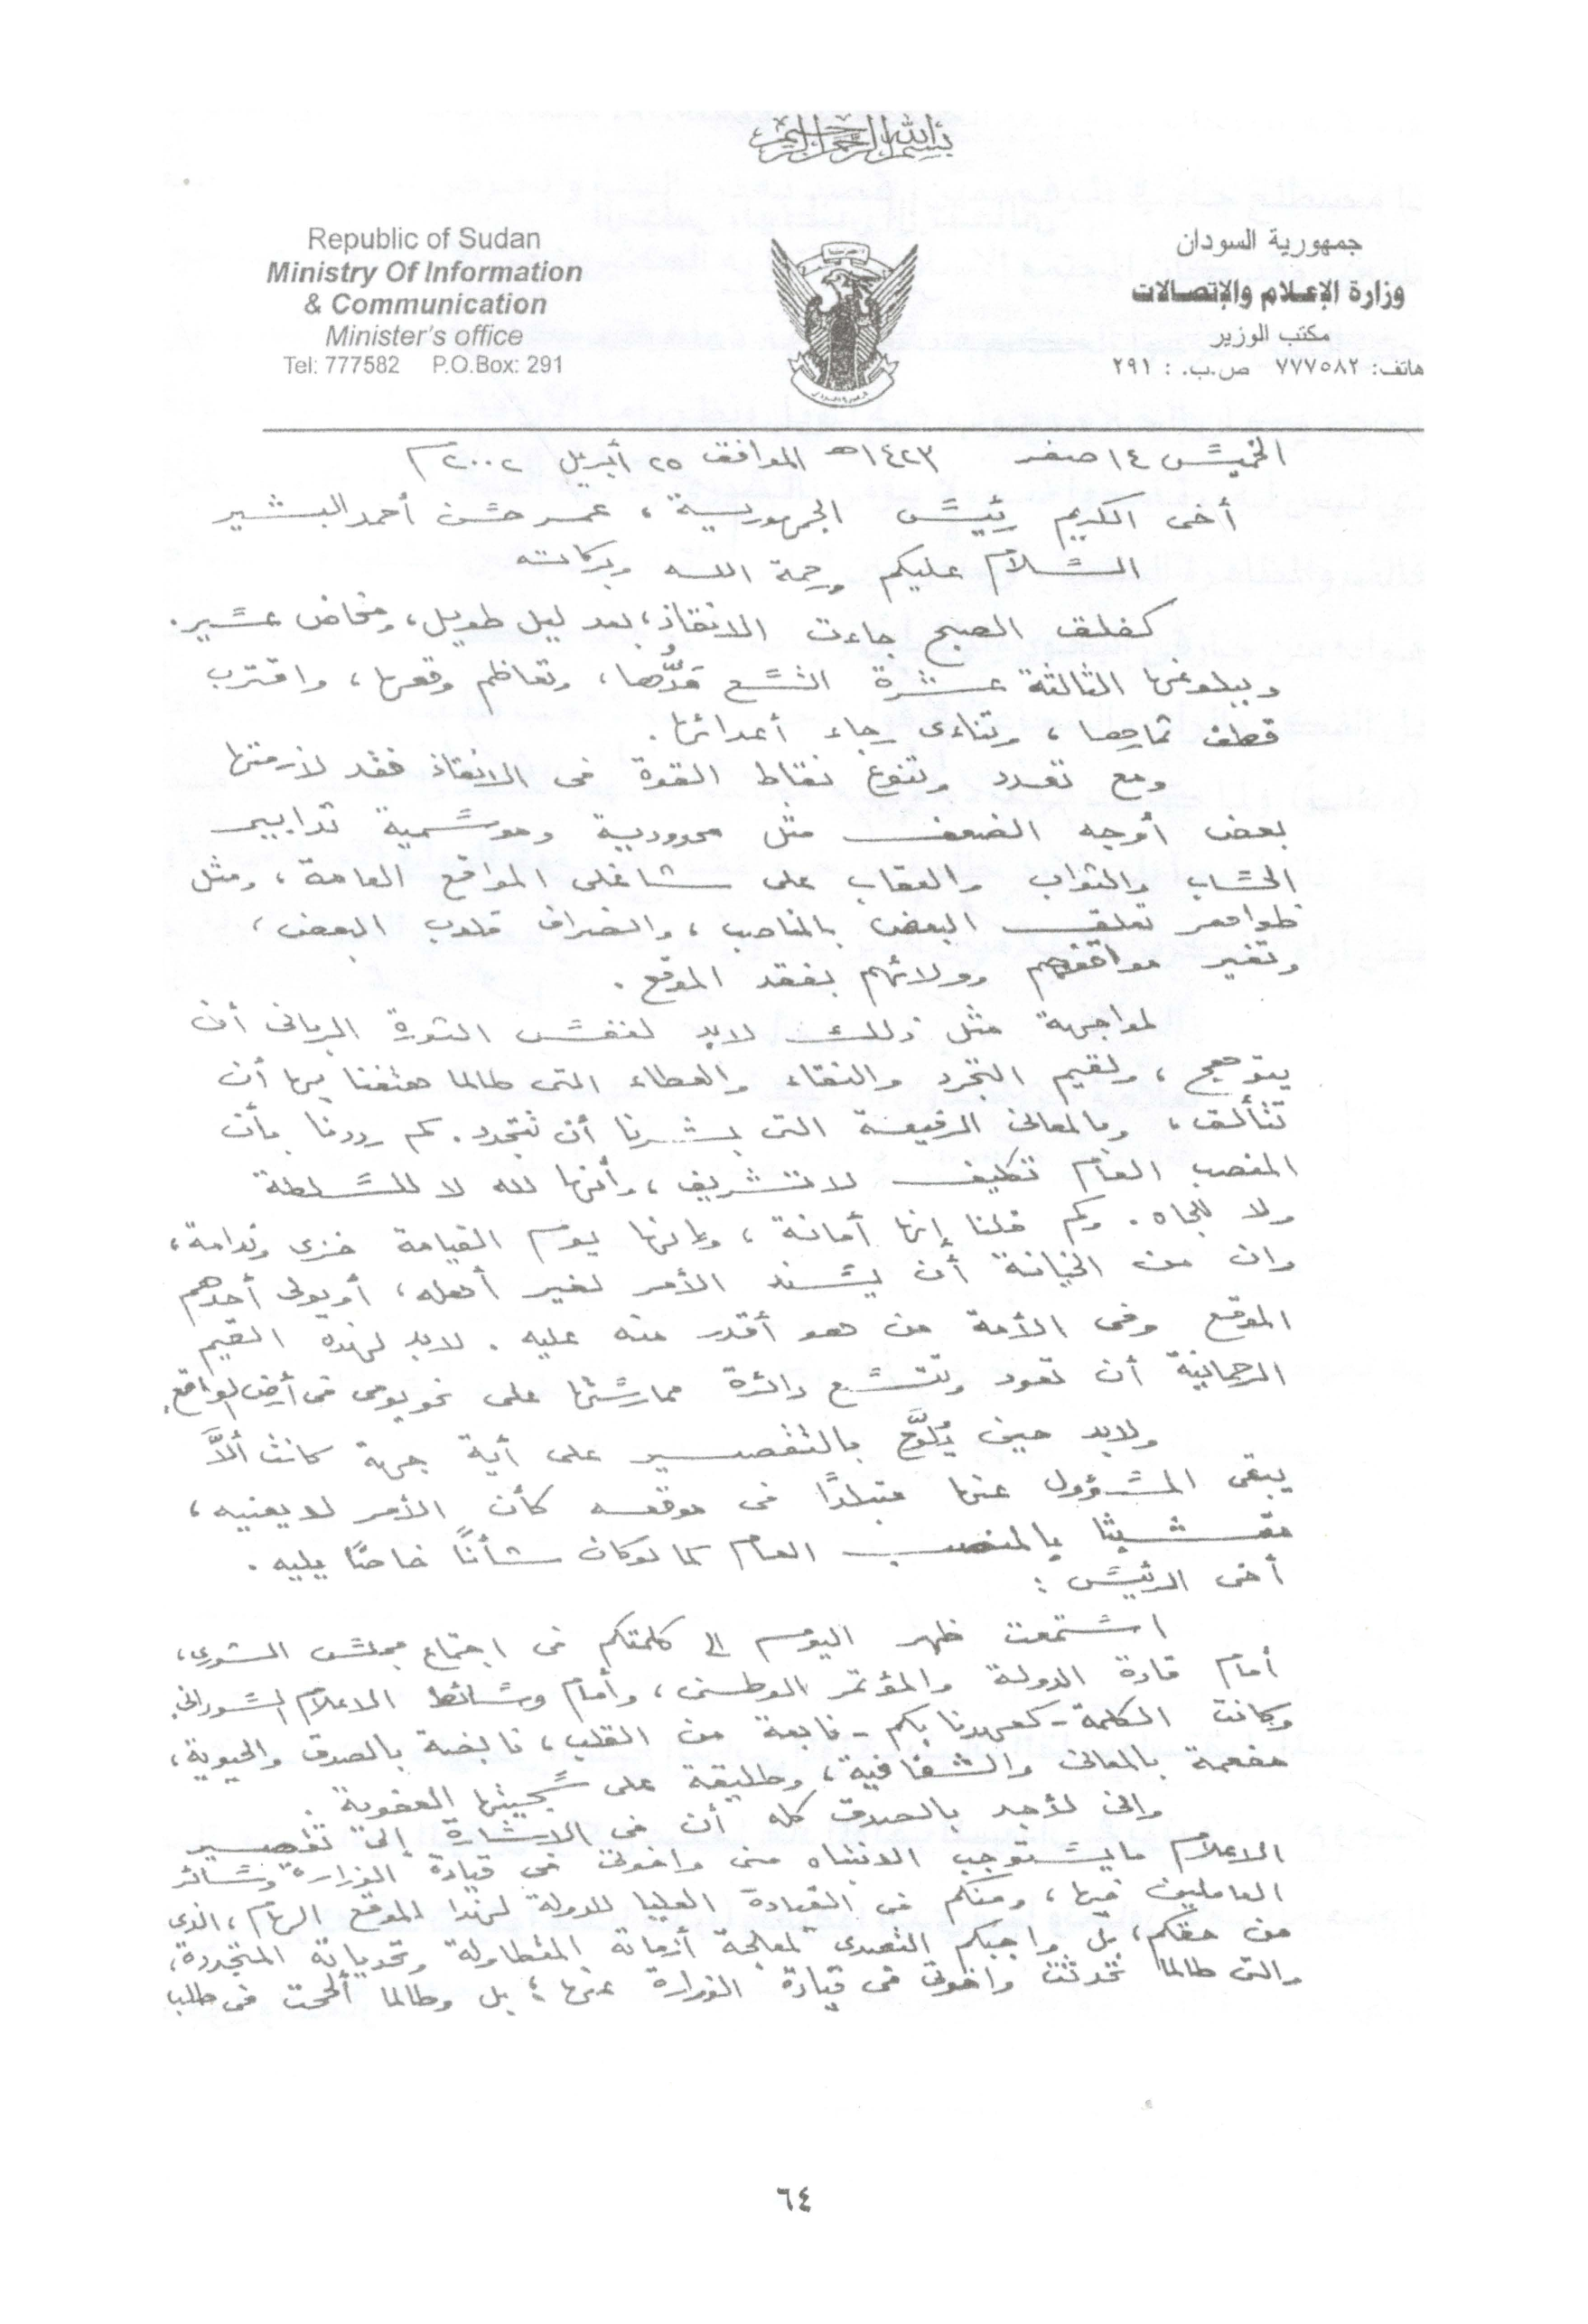 بسم الله الرحمن الرحيم
Republic of Sudan
Ministry Of Information
& Communication
Minister's office
Tel: 777582 P.O.Box: 291
جمهورية السودان
وزارة الإعلام والإتصالات
مكتب الوزير
هاتف: ٧٧٧٥٨٢ ص.ب. : ٢٩١
الخميس ١٤ صفر ١٤٢٣هـ الموافق ٢٥ أبريل ٢٠٠٢م
أخى الكريم رئيس الجمهورية، عمر حسن أحمد البشير
السلام عليكم ورحمة الله وبركاته
كفلق الصبح جاءت الانقاذ، بعد ليل طويل، ومخاض عسير.
وببلوغها الثالثة عشرة اتسع مَدُّها، وتعاظم وقعها، واقترب
قطف ثمارها، وتناءى رجاء أعدائها.
ومع تعدد وتنوع نقاط القوة فى الانقاذ فقد لازمتها
بعض أوجه الضعف مثل محدودية وموسمية تدابير
الحساب والثواب والعقاب على شاغلى المواقع العامة، ومثل
ظواهر تعلق البعض بالمناصب، وانصراف قلوب البعض،
وتغير مواقفهم وولائهم بفقد الموقع.
لمواجهة مثل ذلك لابد لنفس الثورة الربانى أن
يتوهج، ولقيم التجرد والنقاء والعطاء التى طالما هتفنا بها أن
تتألق، وبالمعانى الرفيعة التى بشرنا أن تتجدد. كم رددنا بأن
المنصب العام تكليف لا تشريف، وأنها لله لا للسلطة
ولا للجاه. وكم قلنا إنها أمانة، وإنها يوم القيامة خزى وندامة،
وان من الخيانة أن يسند الأمر لغير أهله، أو يولى أحدهم
الموقع وفى الأمة من هو أقدر منه عليه. لابد لهذه القيم
الرحمانية أن تعود وتتسع دائرة ممارستها على نحو يومى فى أرض الواقع.
ولابد حين يُلوَّح بالتقصير على أية جهة كانت ألاَّ
يبقى المسؤول عنها متبلدًا فى موقعه كأن الأمر لا يعنيه،
متشبثا بالمنصب العام كما لو كان شأنًا خاصًا يليه.
أخى الرئيس:
استمعت ظهر اليوم إلى كلمتكم فى اجتماع مجلس الشورى،
أمام قادة الدولة والمؤتمر الوطنى، وأمام وسائط الاعلام السودانى
وكانت الكلمة - كعهدنا بكم - نابعة من القلب، نابضة بالصدق والحيوية،
مفعمة بالمعانى والشفافية، وطليقة على سجيتها العفوية.
وانى لأجد بالصدق كله أن فى الاشارة إلى تقصير
الاعلام ما يستوجب الانتباه منى واخوتى فى قيادة الوزارة وسائر
العاملين فيها، ومنكم فى القيادة العليا للدولة لهذا الموقع الهام، الذى
من حقكم، بل واجبكم التصدى لمعالجة أزماته المتطاولة وتحدياته المتجددة،
والتى طالما تحدثت واخوتى فى قيادة الوزارة عنها؛ بل وطالما ألححت فى طلب
٦٤